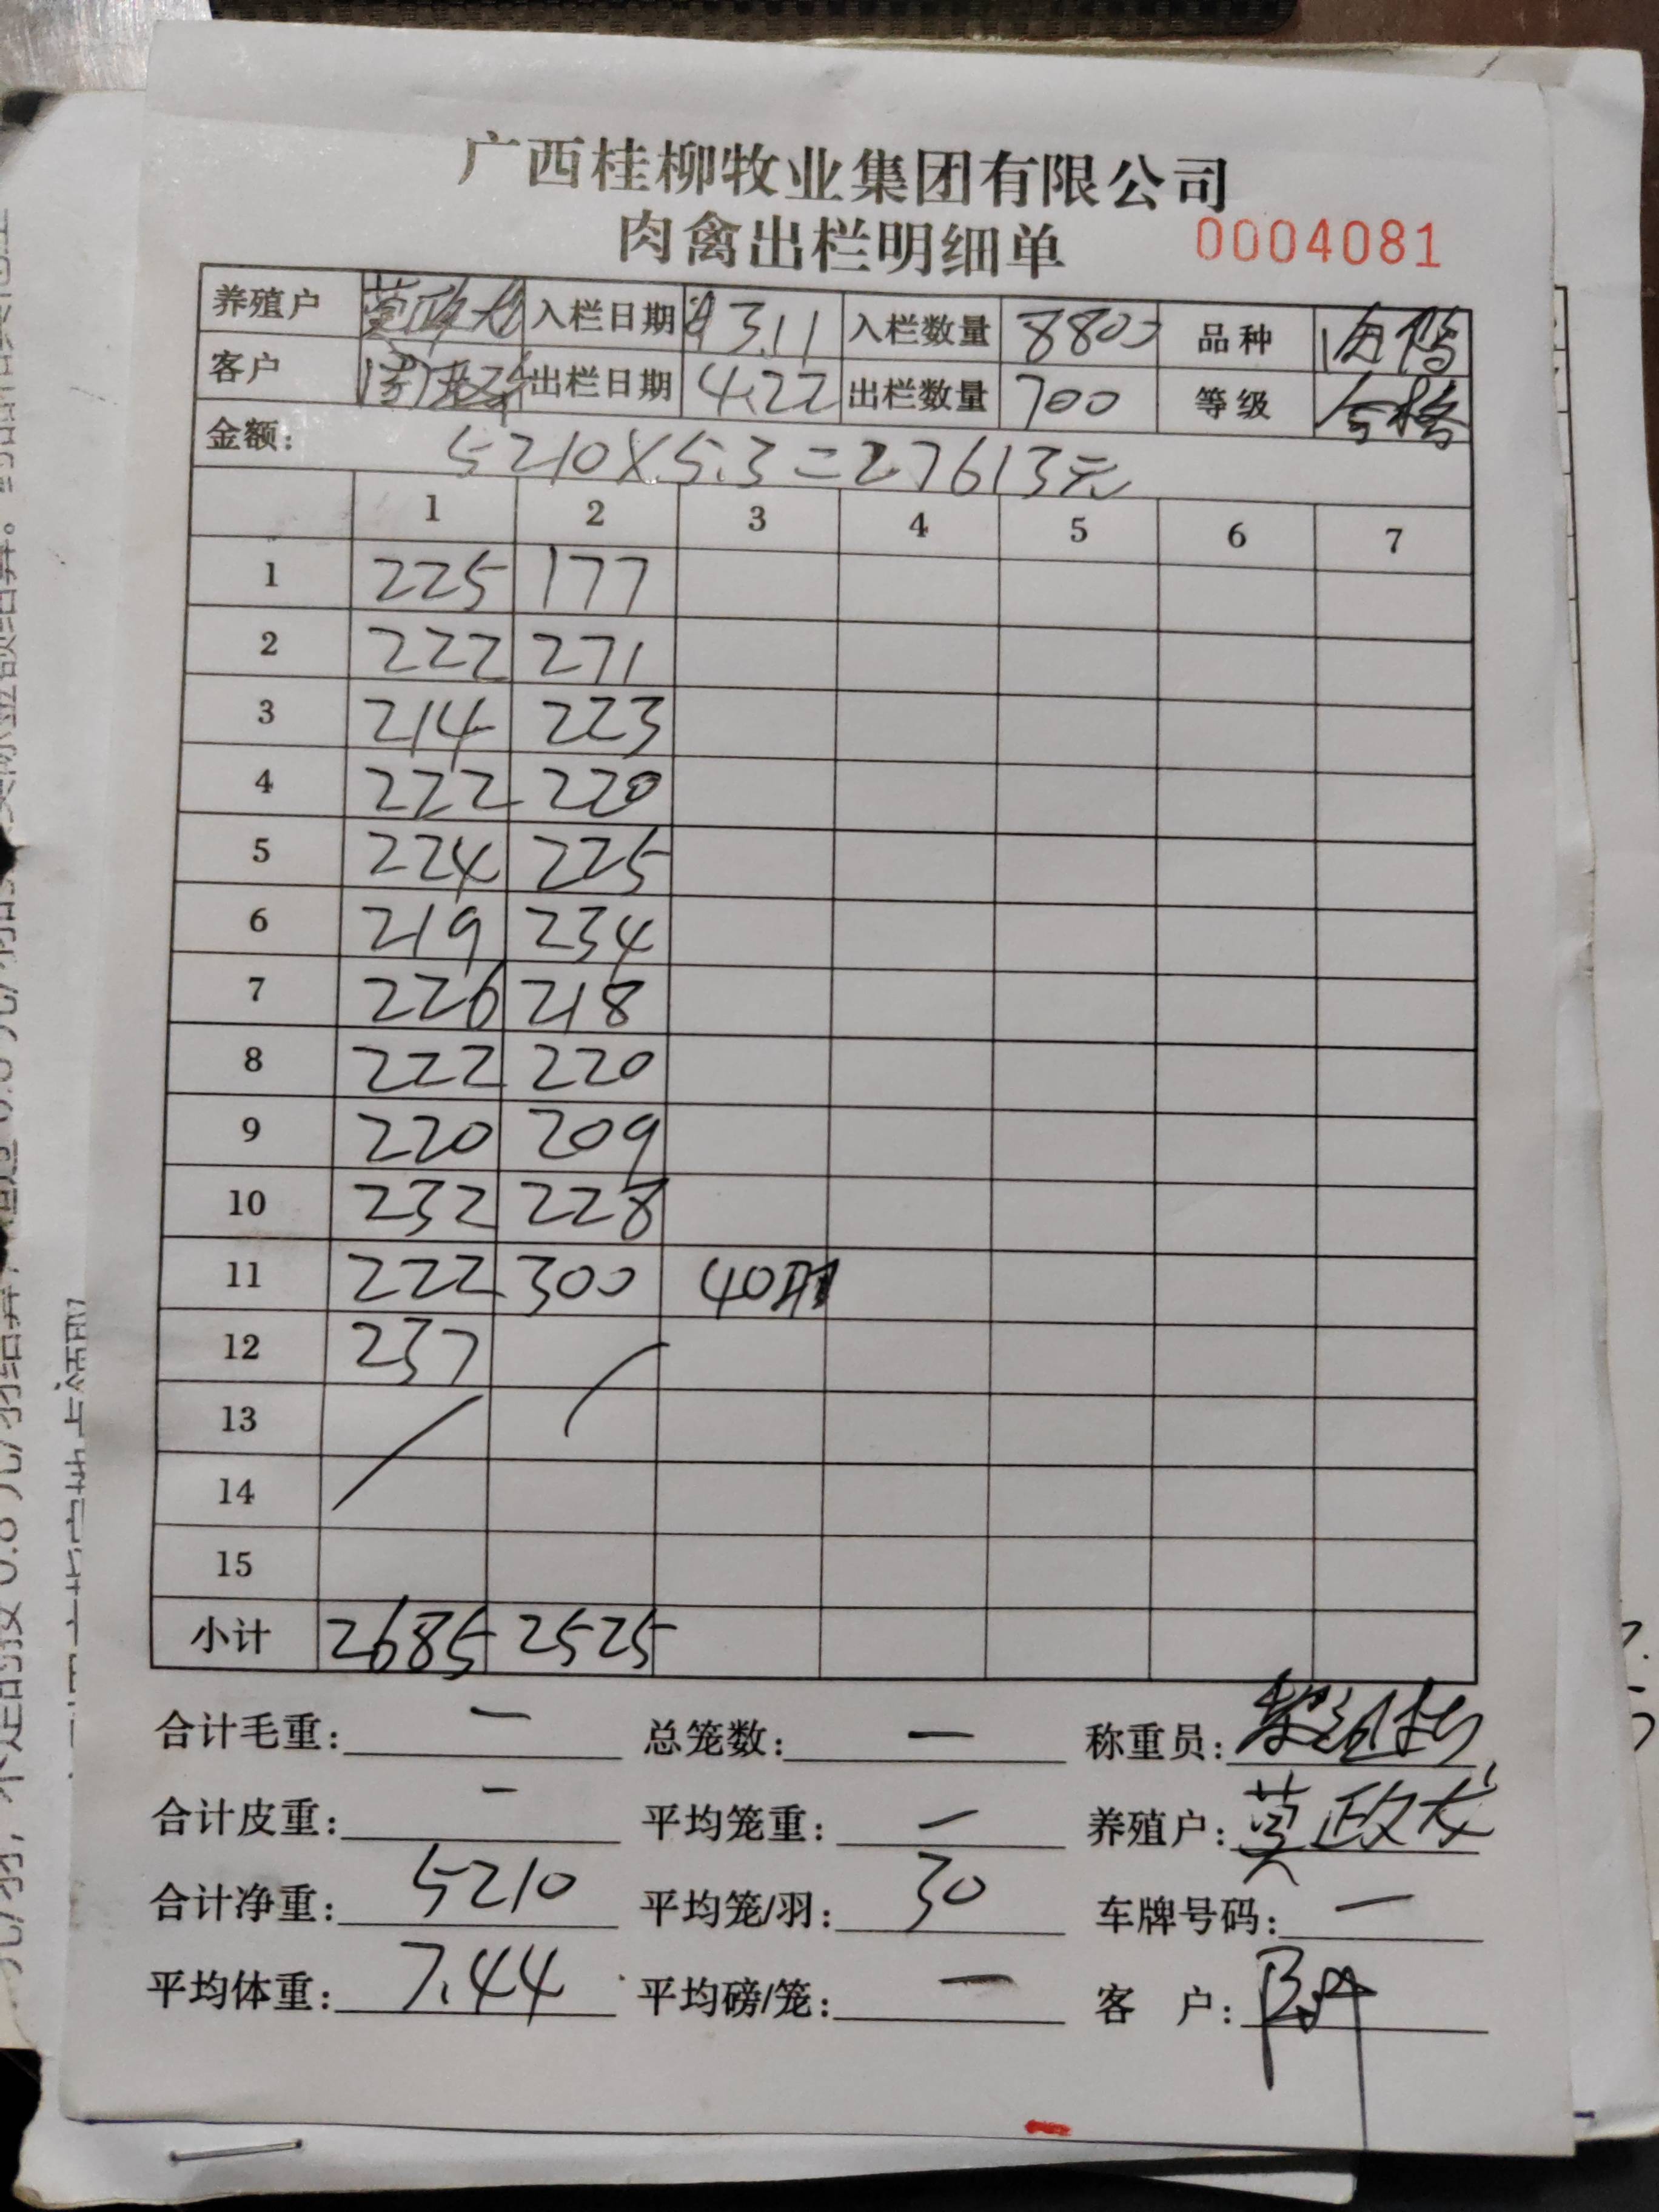 广西桂柳牧业集团有限公司
肉禽出栏明细单 0004081
养殖户 莫政龙 入栏日期 3.11 入栏数量 8800 品种
客户 出栏日期 4.22 出栏数量 700 等级 合格
金额: 5210×5.3=27613元
1 2 3 4 5 6 7
1 225 177
2 222 271
3 214 223
4 222 220
5 224 225
6 219 234
7 226 218
8 222 220
9 220 209
10 232 228
11 222 300 40
12 237
13
14
15
小计 2685 2525
合计毛重: — 总笼数: — 称重员:
合计皮重: — 平均笼重: — 养殖户: 莫政龙
合计净重: 5210 平均笼/羽: 30 车牌号码: —
平均体重: 7.44 平均磅/笼: — 客 户: